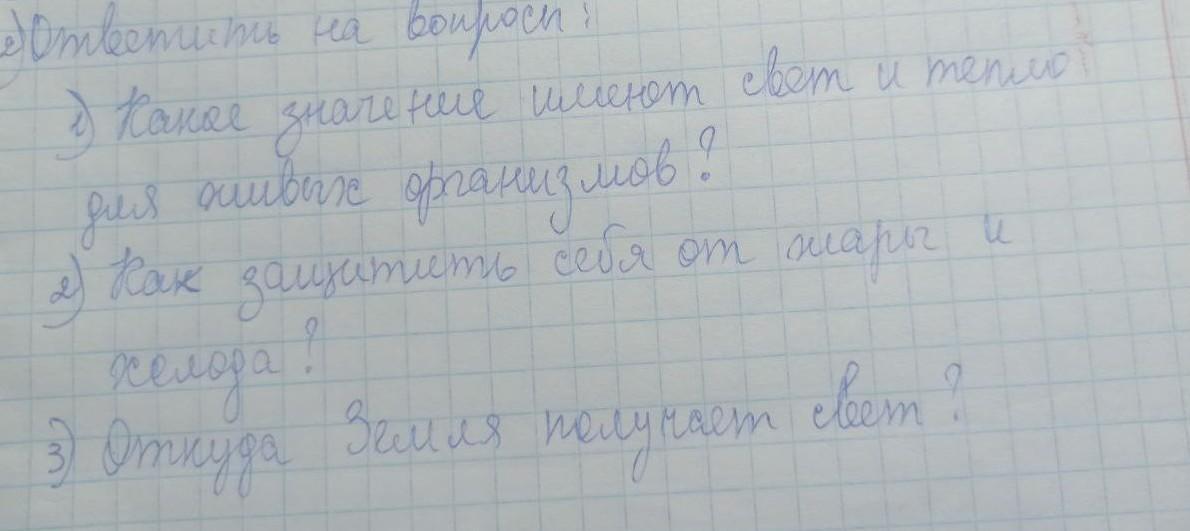 2) Ответить на вопросы:
1) Какое значение имеют свет и тепло
для живых организмов?
2) Как защитить себя от жары и
холода?
3) Откуда Земля получает свет?